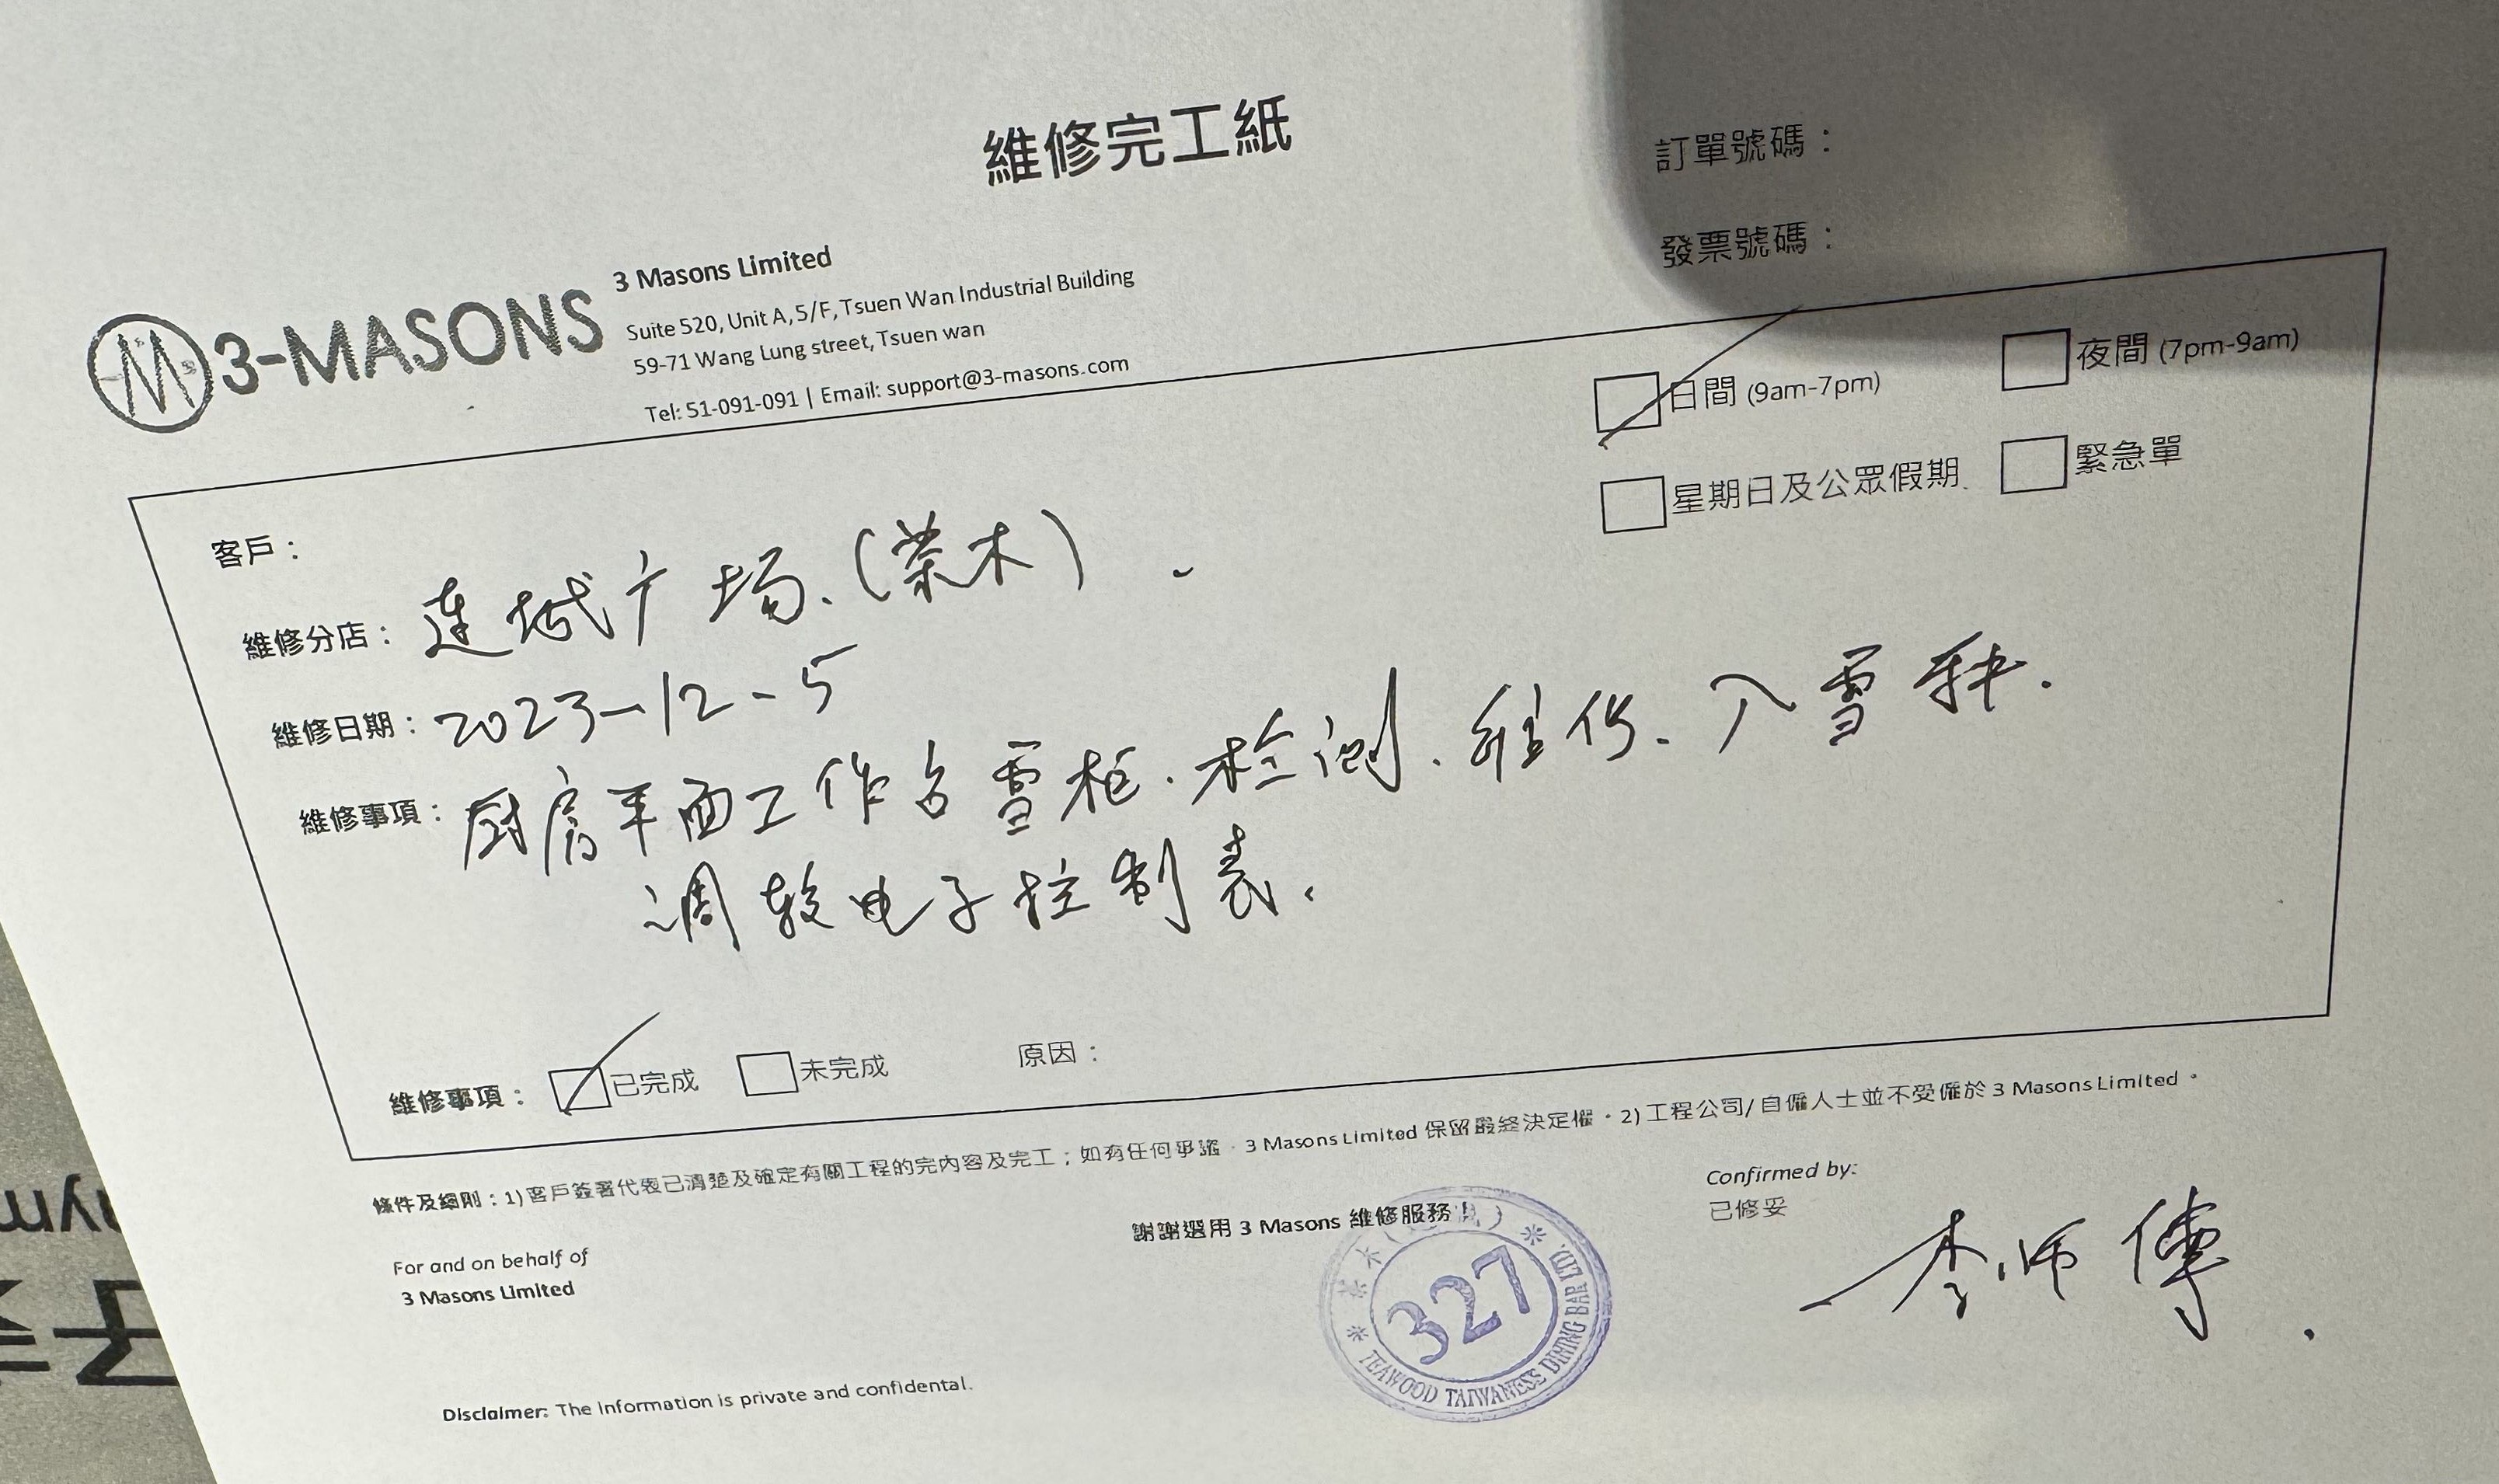 維修完工紙
訂單號碼：
發票號碼：
3-MASONS
3 Masons Limited
Suite 520, Unit A, 5/F, Tsuen Wan Industrial Building
59-71 Wang Lung street, Tsuen wan
Tel: 51-091-091 | Email: support@3-masons.com
日間 (9am-7pm)
夜間 (7pm-9am)
星期日及公眾假期
緊急單
客戶：
維修分店：连城广场.(茶木).
維修日期：2023-12-5
維修事項：厨房平面工作台雪柜.检测.维修.入雪种.
调较电子控制表.
維修事項：已完成 未完成 原因：
條件及細則：1) 客戶簽署代表已清楚及確定有關工程的完內容及完工；如有任何爭議，3 Masons Limited 保留最終決定權。2) 工程公司/自僱人士並不受僱於 3 Masons Limited。
謝謝選用 3 Masons 維修服務
Confirmed by:
已修妥
李师傅
For and on behalf of
3 Masons Limited
327
TEAWOOD TAIWANESS DINING BAR LTD.
Disclaimer: The information is private and confidental.